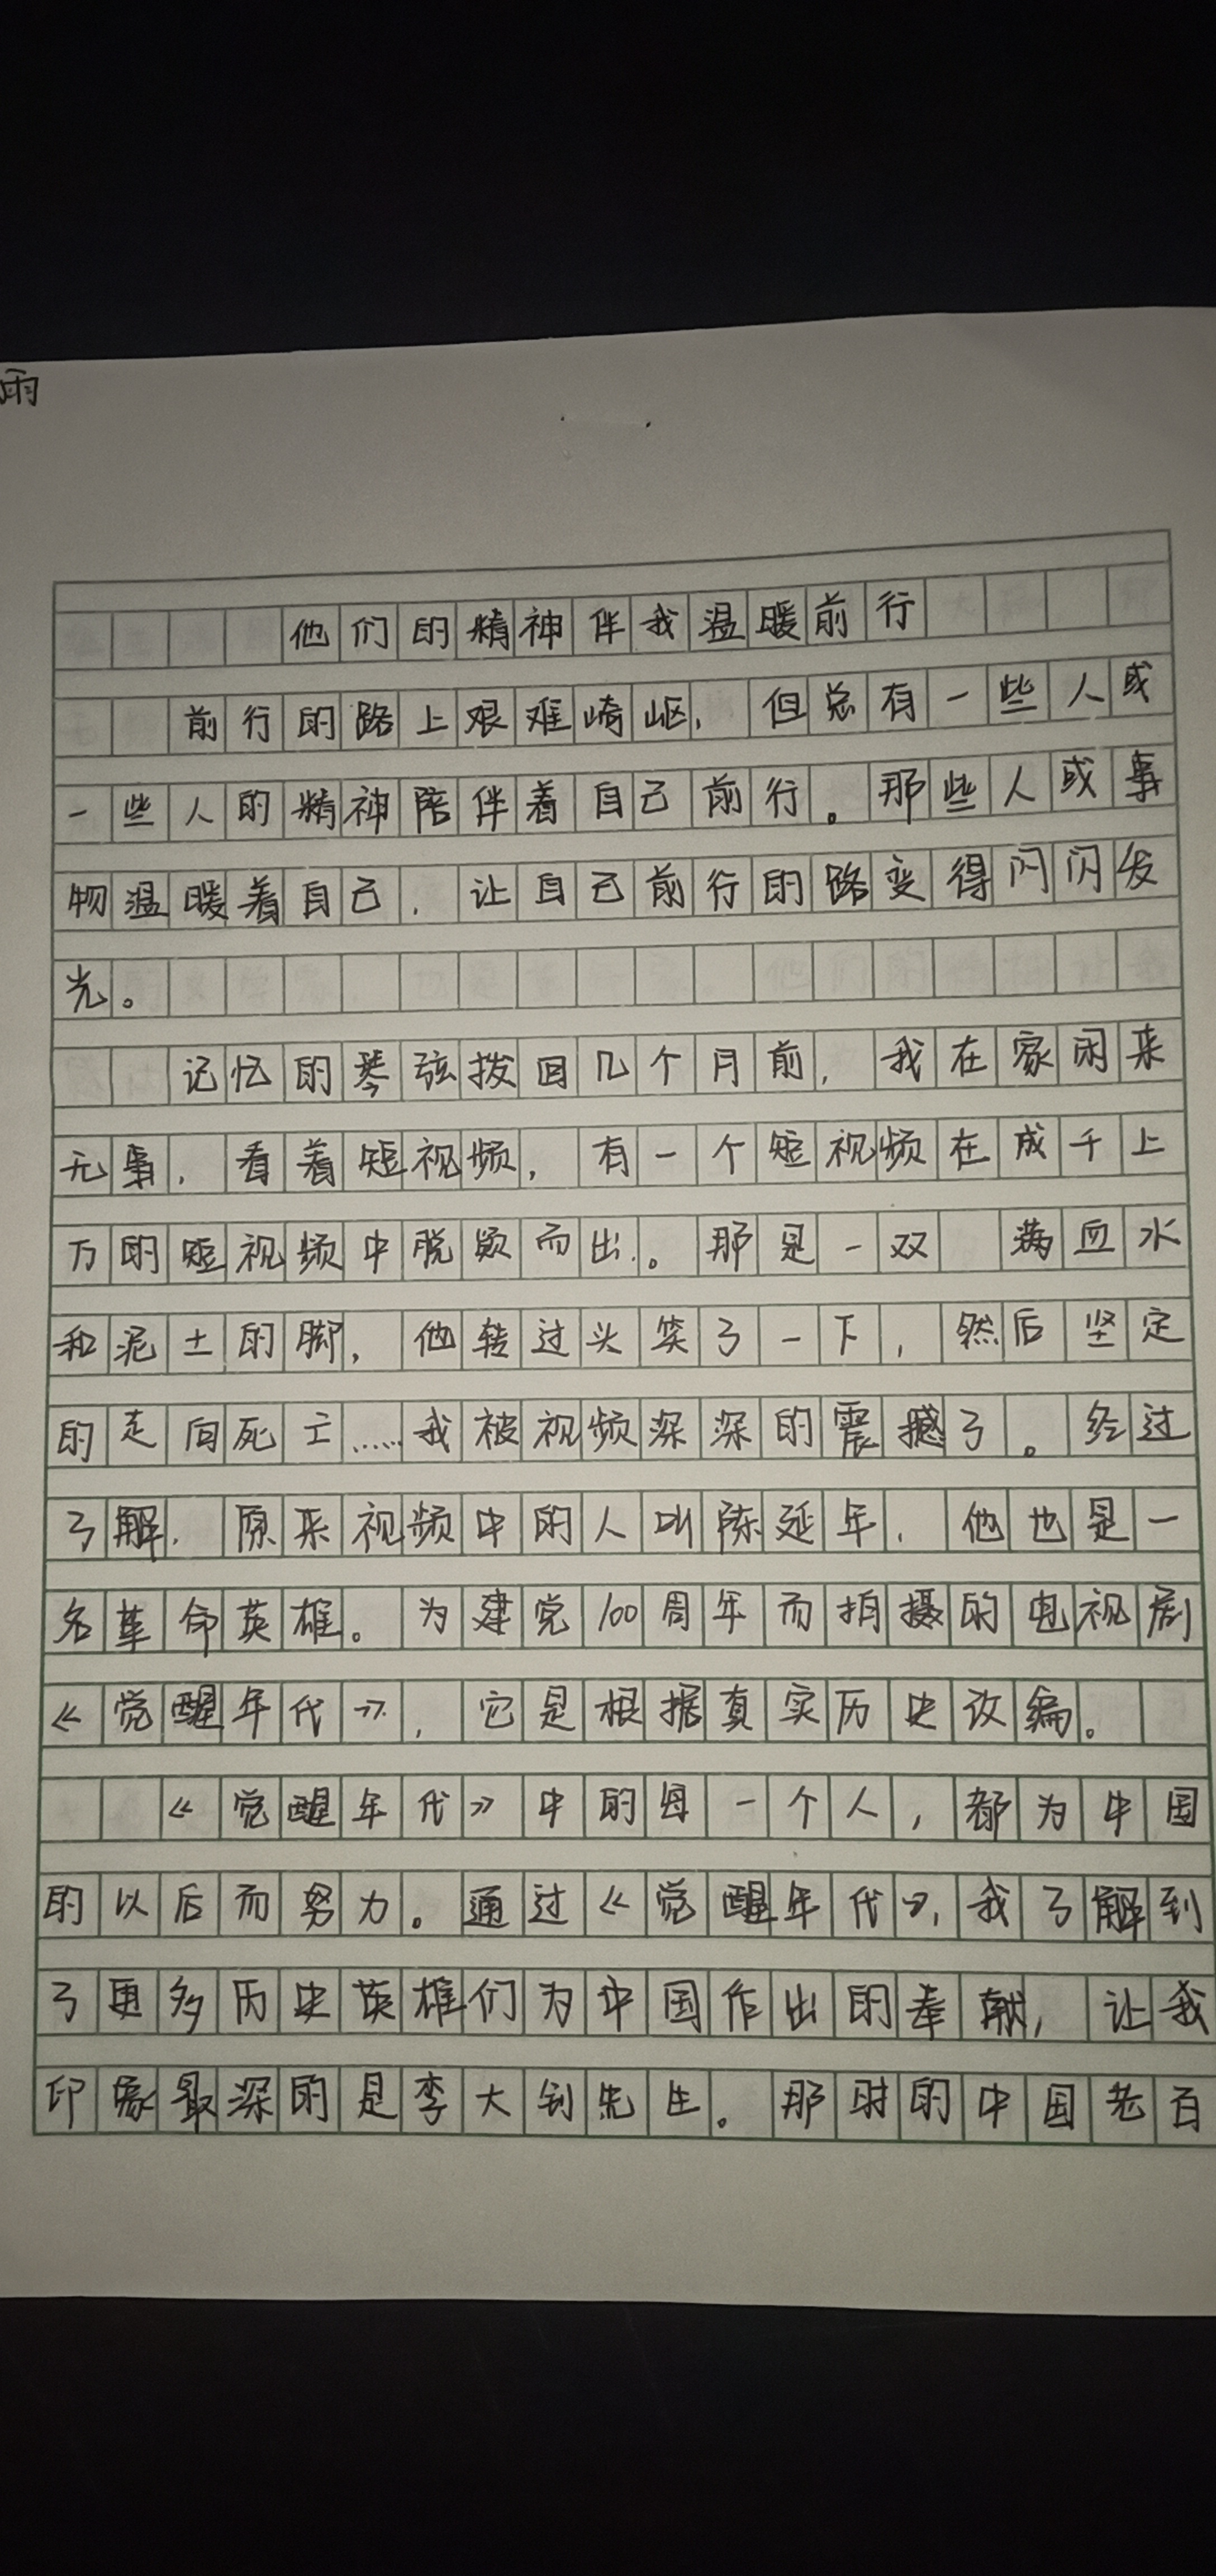 雨
他们的精神伴我温暖前行
前行的路上艰难崎岖，但总有一些人或
一些人的精神陪伴着自己前行。那些人或事
物温暖着自己，让自己前行的路变得闪闪发
光。
记忆的琴弦拨回几个月前，我在家闲来
无事，看着短视频，有一个短视频在成千上
万的短视频中脱颖而出。那是一双 满血水
和泥土的脚，他转过头笑了一下，然后坚定
的走向死亡……我被视频深深的震撼了。经过
了解，原来视频中的人叫陈延年，他也是一
名革命英雄。为建党100周年而拍摄的电视剧
《觉醒年代》，它是根据真实历史改编。
《觉醒年代》中的每一个人，都为中国
的以后而努力。通过《觉醒年代》，我了解到
了更多历史英雄们为中国作出的奉献，让我
印象最深的是李大钊先生。那时的中国老百